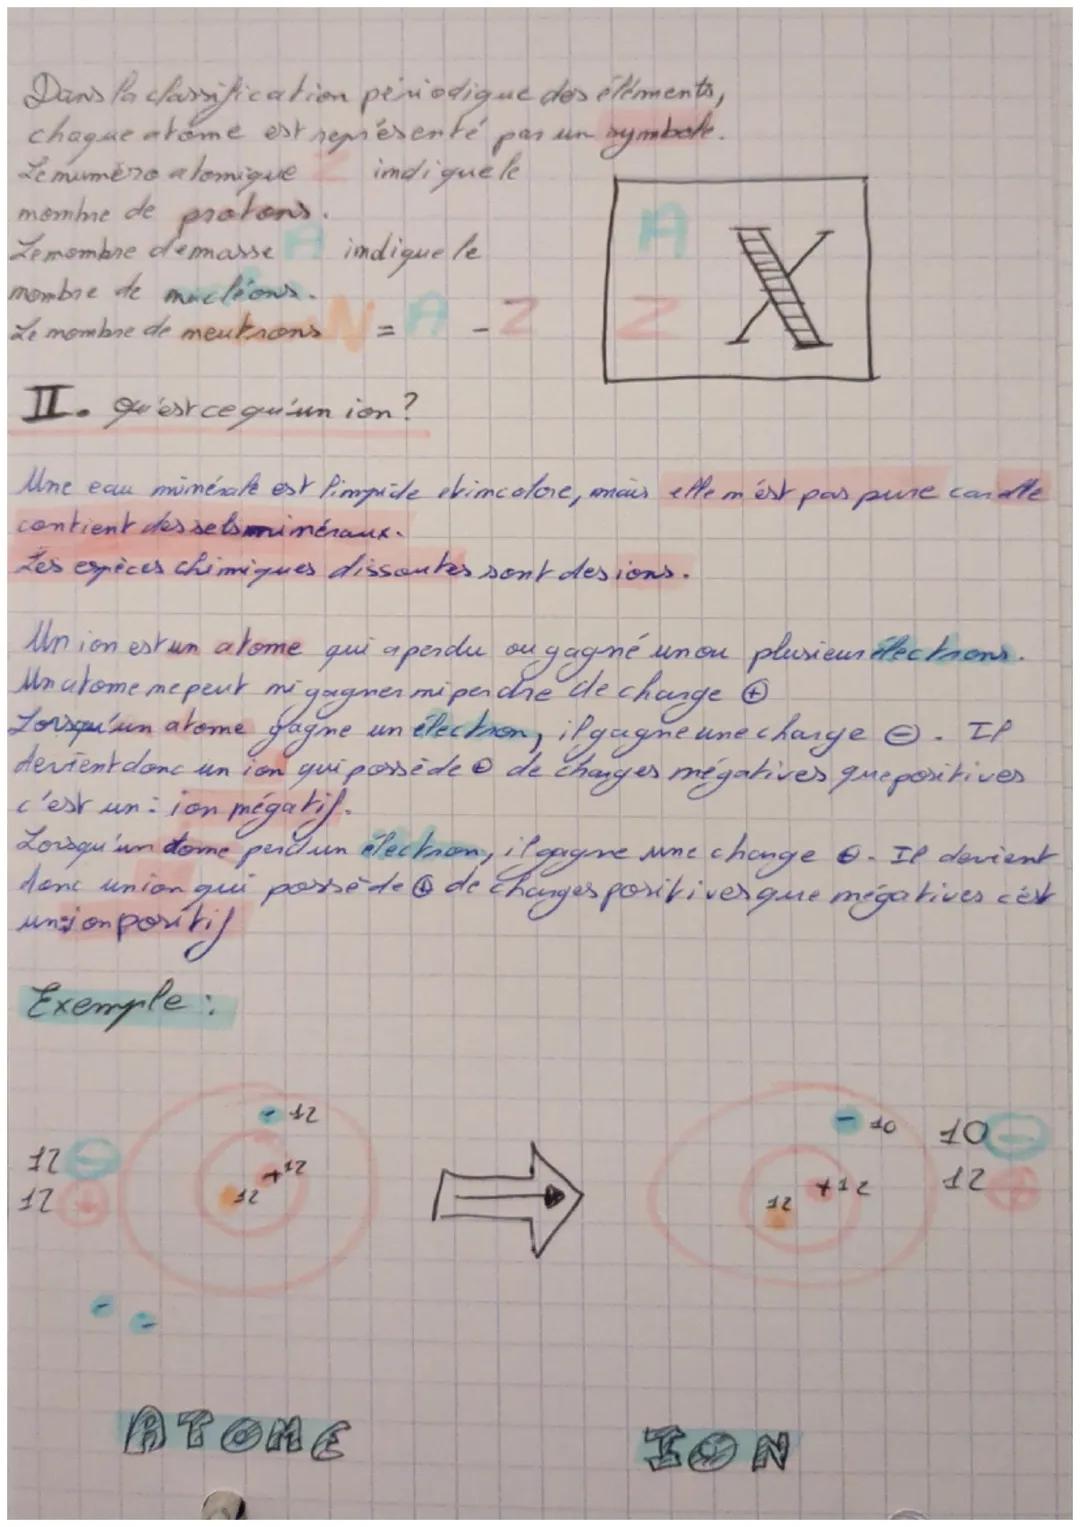 Dans la classification périodique des éléments,
chaque atome est représenté par un symbole.
Le numéro atomique Z indique le
nombre de protons.
Le nombre de masse A indique le
nombre de nucléons.
Le nombre de neutrons N = A - Z
A
Z X
II. Qu'est ce qu'un ion ?
Une eau minérale est limpide et incolore, mais elle n'est pas pure car elle
contient des sels minéraux.
Les espèces chimiques dissoutes sont des ions.
Un ion est un atome qui a perdu ou gagné un ou plusieurs électrons.
Un atome ne peut ni gagner ni perdre de charge ⊕
Lorsqu'un atome gagne un électron, il gagne une charge ⊖. Il
devient donc un ion qui possède ⊕ de charges négatives que positives
c'est un : ion négatif.
Lorsqu'un atome perd un électron, il gagne une charge ⊕. Il devient
donc un ion qui possède ⊕ de charges positives que négatives c'est
un : ion positif
Exemple :
- 12
12 -
12 +
+12
12
- -
- 10
10 -
12 +
+12
12
ATOME
ION